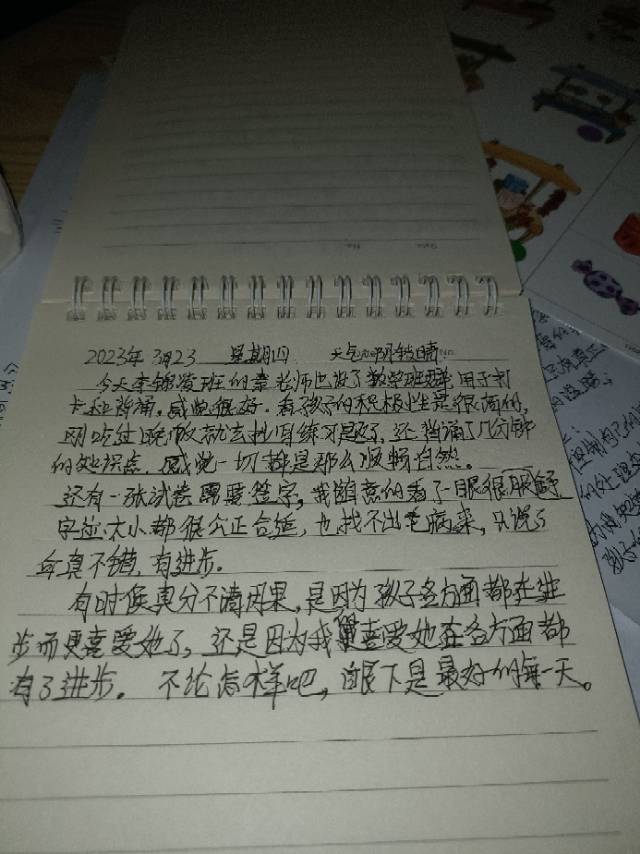 2023年 3月23 星期四 天气:阴转晴
今天李锦 班的 老师也发了数学班群用于打
卡和背诵,感觉很好。看孩子的积极性是很高的,
刚吃过晚饭就去抄写练习题了,还背诵了几分钟
的知识点,感觉一切都是那么顺畅自然。
还有一张试卷需要签字,我随意的看了一眼很服舒
字迹、大小都很公正合适,也找不出毛病来,只说了
句真不错,有进步。
有时候真分不清因果,是因为孩子各方面都在进
步而更喜爱她了,还是因为我 喜爱她在各方面都
有了进步。不论怎样吧,眼下是最好的每一天。